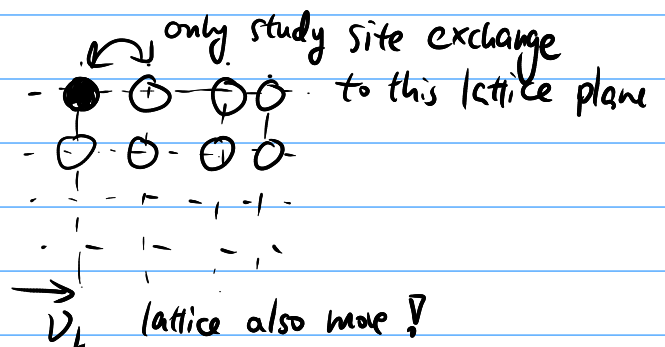 only study site exchange
to this lattice plane
ν_L lattice also move!